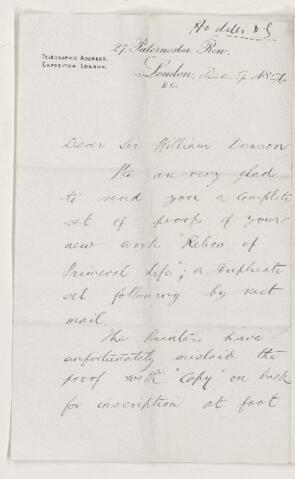 Hodder & S
27, Paternoster Row,
TELEGRAPHIC ADDRESS,
EXPOSITOR LONDON.
London, Dec 9 1896
E.C.
Dear Sir William Dawson
We are very glad
to send you a complete
set of proofs of your
new work "Relics of
Primeval Life"; a duplicate
set following by next
mail.
The Printers have
unfortunately mislaid the
proof with "copy" on back
for inscription at foot